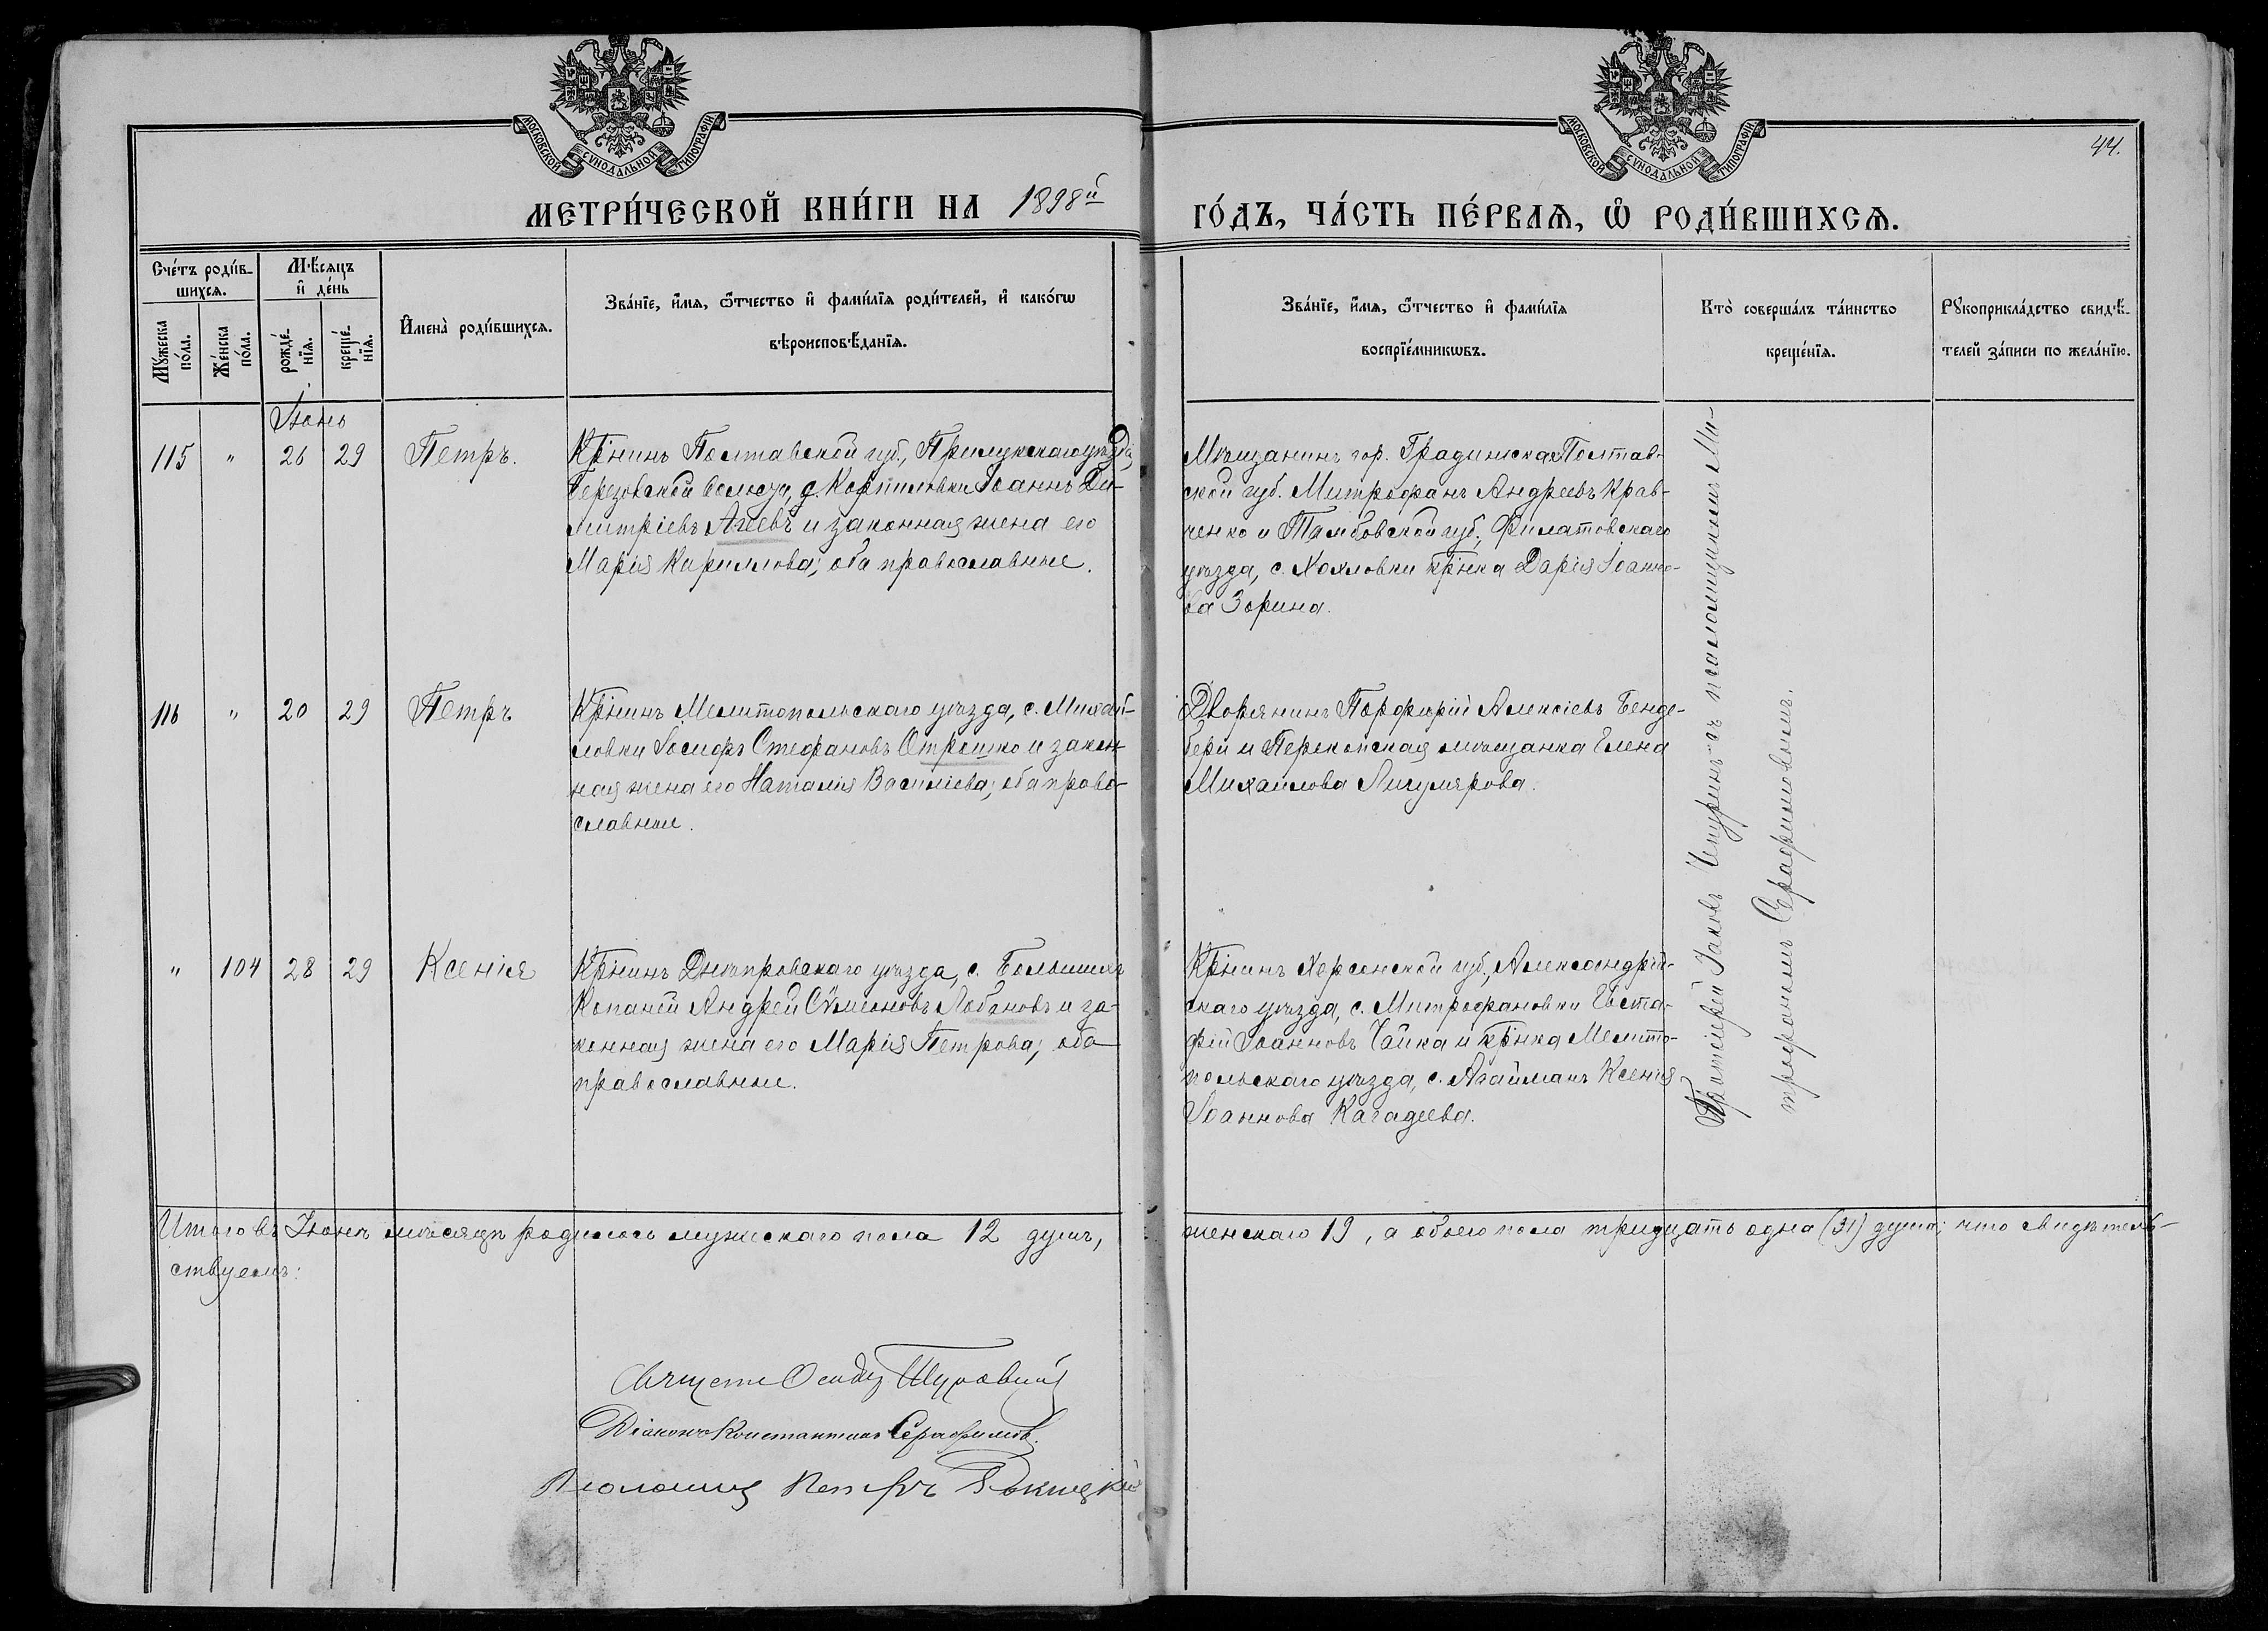 МОСКОВСКОЙ СѴНОДАЛЬНОЙ ТИПОГРАФІИ
МОСКОВСКОЙ СѴНОДАЛЬНОЙ ТИПОГРАФІИ
44.
МЕТРИ́ЧЕСКОЙ КНИ́ГИ НА 1898й
ГО́ДЪ, ЧА́СТЬ ПЕ́РВАѦ, Ѽ РОДИ́ВШИХСѦ.
Сче́тъ роди́в-
шихсѧ.
Мѣ́сѧцъ
и҆ де́нь
Мꙋ́жеска
по́ла.
Же́нска
по́ла.
рожде́-
нїѧ.
креще́-
нїѧ.
И҆мена̀ роди́вшихсѧ.
Зва́нїе, и҆́мѧ, ѻ҆́тчество и҆ фамі́лїѧ роди́телей, и҆ како́гѡ
вѣроисповѣ́данїѧ.
Зва́нїе, и҆́мѧ, ѻ҆́тчество и҆ фамі́лїѧ
воспрїе́мникѡвъ.
Кто̀ соверша́лъ та́инство
креще́нїѧ.
Рꙋкоприкла́дство свидѣ́-
телей за́писи по жела́нїю.
Іюнь
115 " 26 29 Петръ.
Крнинъ Полтавской губ., Прилукскаго уѣзда,
Березовской волости, д. Іоаннъ Ди-
митріевъ Агіевъ и законная жена его
Марія Кириллова; оба православные.
Мѣщанинъ гор. Градижска Полтав-
ской губ. Митрофанъ Андреевъ Крав-
ченко и Тамбовской губ., Филатовскаго
уѣзда, с. Хохловки крнка Дарія Іоанно-
ва Зорина.
116 " 20 29 Петръ
Крнинъ Мелитопольскаго уѣзда, с. Михай-
ловки Іосифъ Стефановъ Отрошко и закон-
ная жена его Наталія Василіева; оба право-
славные.
Дворянинъ Порфирій Алексіевъ Бенде-
бери и Перекопская мѣщанка Елена
Михаилова
" 104 28 29 Ксенія
Крнинъ Днѣпровскаго уѣзда, с. Большихъ
Копаней Андрей Сѵмеоновъ Лобановъ и за-
конная жена его Марія Петрова; оба
православные.
Крнинъ Херсонской губ., Александрій-
скаго уѣзда, с. Митрофановки Евста-
фій Іоанновъ Чайка и крнка Мелито-
польскаго уѣзда, с. Агайманъ Ксенія
Іоаннова Кагадеева.
Протоіерей Іаковъ Чепуринъ съ псаломщикомъ Ми-
трофаномъ Серафимовымъ.
Итого въ Іюнѣ мѣсяцѣ родилось мужескаго пола 12 душъ, женскаго 19, а обоего пола тридцать одна (31) душа; что свидѣтель-
ствуемъ:
Священн
Діаконъ Константинъ Серафимов
Псаломщ Петръ